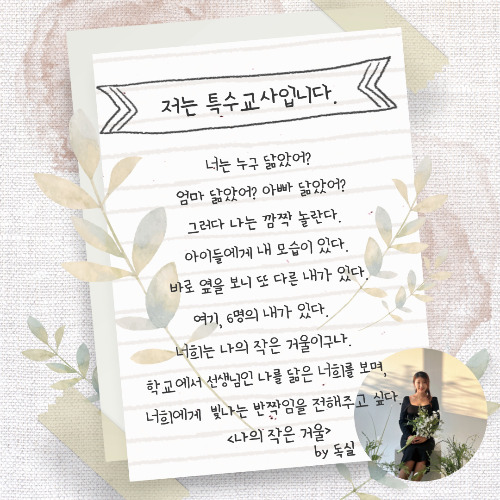 저는 특수교사입니다.
너는 누구 닮았어?
엄마 닮았어? 아빠 닮았어?
그러다 나는 깜짝 놀란다.
아이들에게 내 모습이 있다.
바로 옆을 보니 또 다른 내가 있다.
여기, 6명의 내가 있다.
너희는 나의 작은 거울이구나.
학교에서 선생님인 나를 닮은 너희를 보며,
너희에게 빛나는 반짝임을 전해주고 싶다
<나의 작은 거울>
by 독실